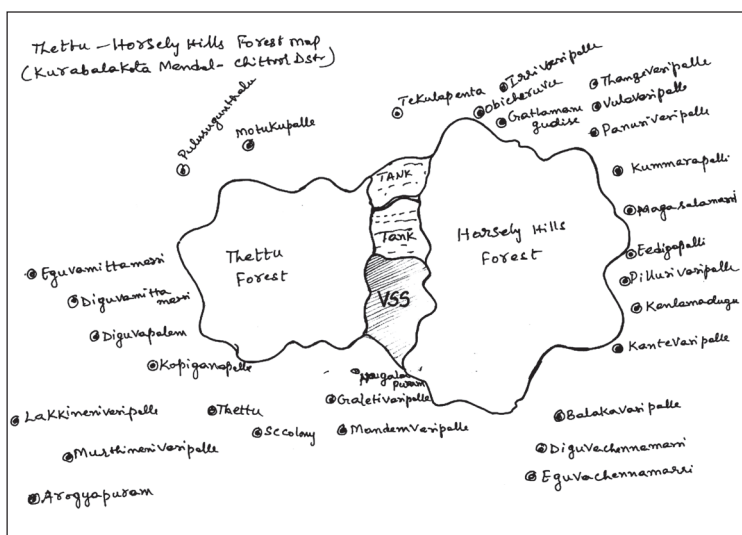 Thettu - Horsely Hills Forest Map
(Kurabalakota Mendal - Chittoor Dstr)
Pulusugunthalu
Motukupalle
Tekulapenta
Irrivaripelle
Obicheruvu
Gatlamaru
gudise
Thangevaripelle
Vulavaripelle
Panurivaripelle
Kummarapelli
Magasalamarri
Eedigapelli
Pillurivaripelle
Kanlamadugu
Kantevaripelle
TANK
Tank
VSS
Thettu
Forest
Horsely Hills
Forest
Eguvamittamarri
Diguvamitta
marri
Diguvapalem
Kopiganapelle
puram
Lakkinenivaripelle
Thettu
Galetivaripelle
Sccolony
Mandemvaripelle
Murthinenivaripelle
Arogyapuram
Balakavaripelle
Diguvachennamarri
Eguvachennamarri